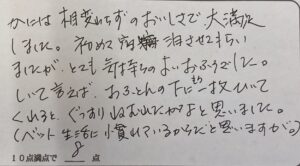 かには相変わらずのおいしさで大満足
しました。初めて宿泊させてもらい
ましたが、とても気持ちのよいおふろでした。
しいて言えば、おふとんの下にもう一枚ひいて
くれると、ぐっすりねむれたかなと思いました。
(ベット生活に慣れているからだと思いますが。)
10点満点で 8 点